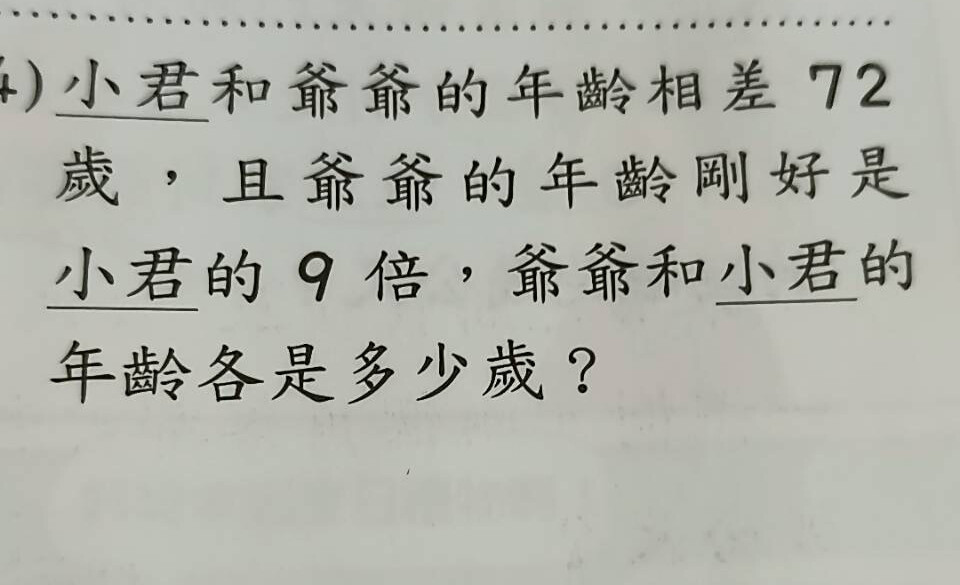 4)小君和爺爺的年齡相差 72
歲，且爺爺的年齡剛好是
小君的 9 倍，爺爺和小君的
年齡各是多少歲？